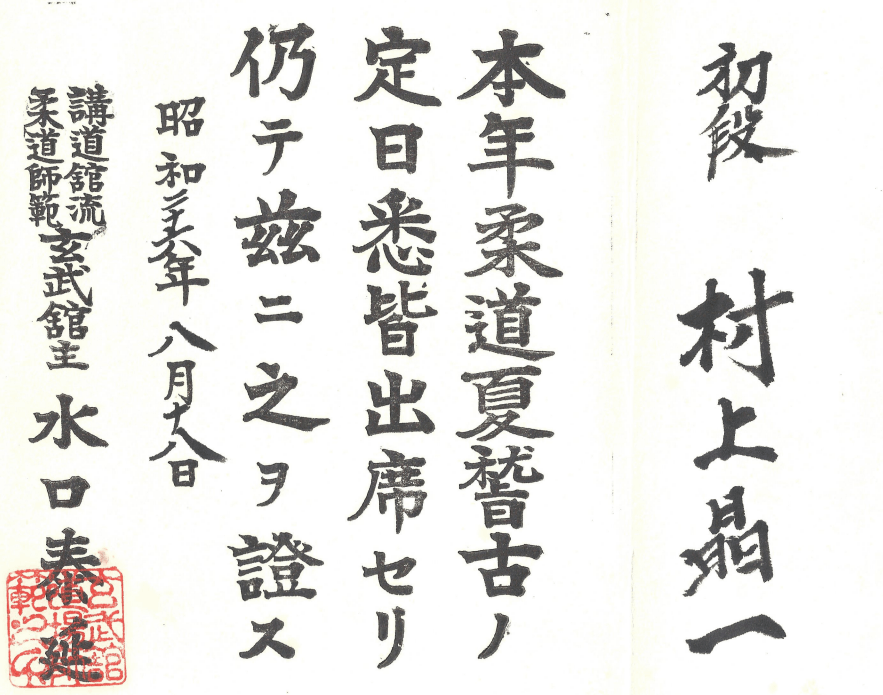 初段 村上 一
本年柔道夏稽古ノ
定日悉皆出席セリ
仍テ茲ニ之ヲ證ス
昭和二十六年八月十八日
講道舘流
柔道師範
玄武舘主 水口泰延